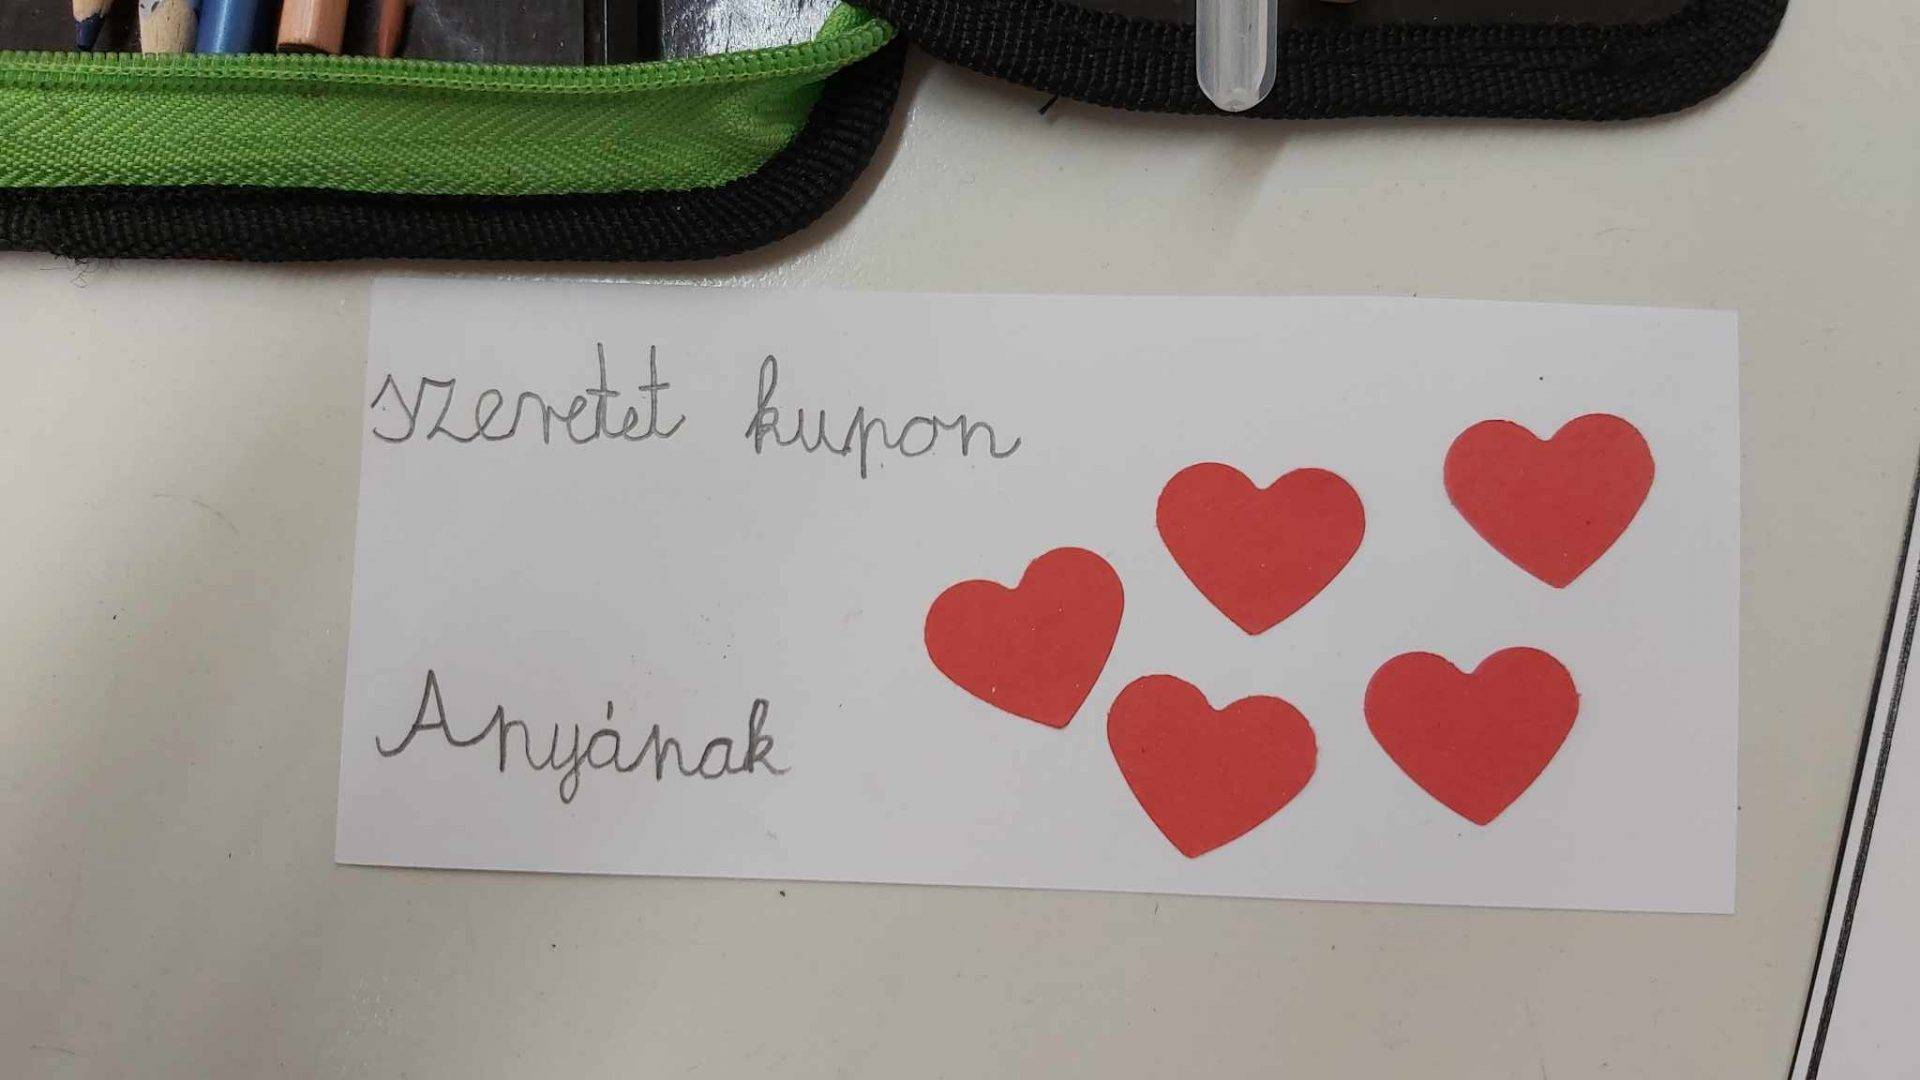 szeretet kupon
Anyának